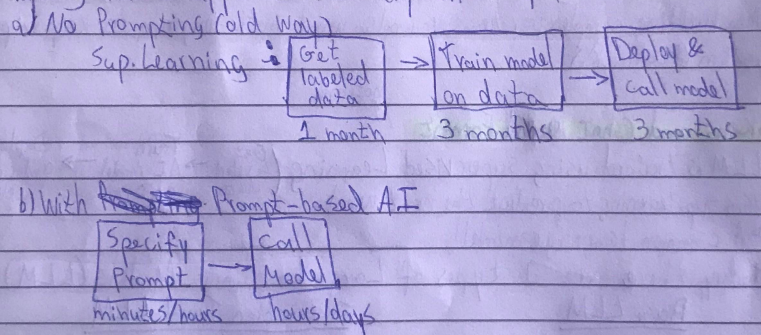 a) No Prompting (old way)
Sup. Learning : Get labeled data → Train model on data → Deploy & call model
1 month 3 months 3 months
b) With Prompt-based AI
Specify Prompt → Call Model
minutes/hours hours/days